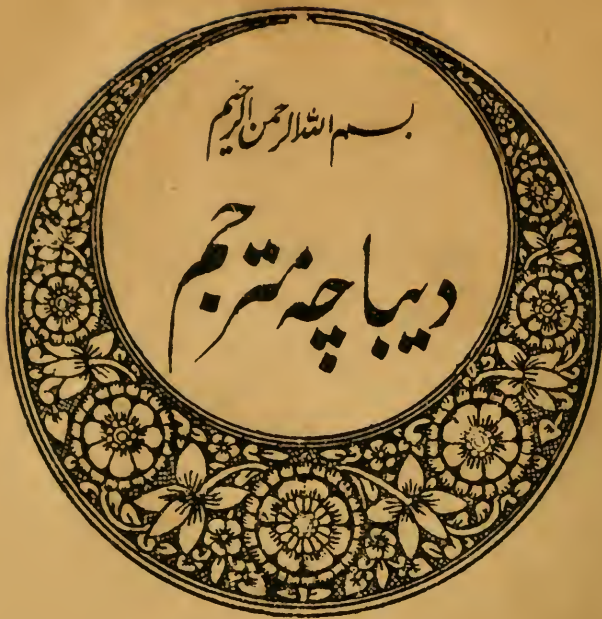 بسم الله الرحمن الرحیم
دیباچہ مترجم